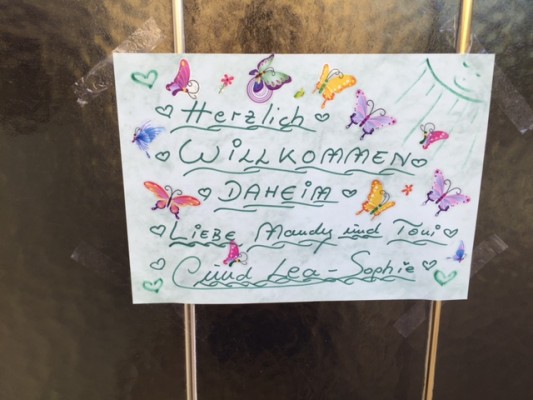 Herzlich
WILLKOMMEN
DAHEIM
LIEBE Mandy und Toni
und Lea-Sophie